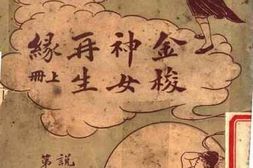 金梭
神女
再生
緣上冊
説
第